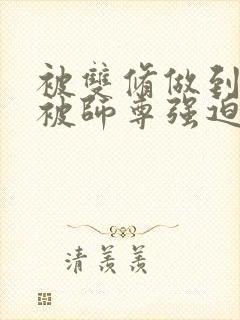 被雙脩做到
被師尊强迫
清羨羨